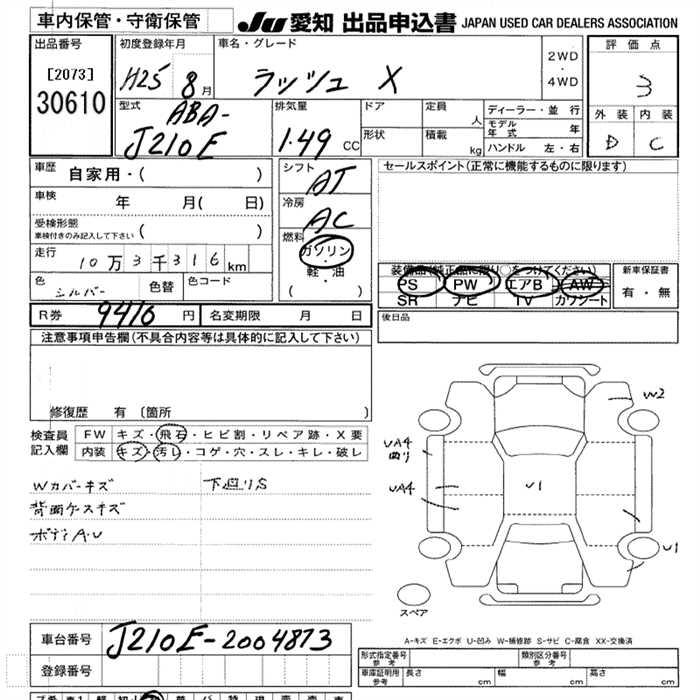 車内保管・守衛保管
JU 愛知 出品申込書 JAPAN USED CAR DEALERS ASSOCIATION
出品番号 初度登録年月 車名・グレード 評価点
[2073] H25 8月 ラッシュ X 2WD・4WD 3
30610
型式 ABA- 排気量 ドア 定員 人 ディーラー・並行 外装 内装
J210E 1.49 CC 形状 積載 kg モデル年式 年 D C
ハンドル 左・右
車歴 自家用・( ) シフト AT セールスポイント(正常に機能するものに限ります)
車検 年 月( 日) 冷房 AC
受検形態 車検付きのみ記入して下さい ( ) 燃料 ガソリン・軽・油 ( )
走行 10万3千316km
色 シルバー 色替 色コード
装備品(純正品に限り○をつけてください) 新車保証書
PS PW エアB AW 有・無
SR ナビ TV カワシート
R券 9416円 名変期限 月 日 後日品
注意事項申告欄(不具合内容等は具体的に記入して下さい)
修復歴 有 (箇所
検査員記入欄 FW キズ・飛石・ヒビ割・リペア跡・X要
内装 キズ・汚レ・コゲ・穴・スレ・キレ・破レ
Wカバーキズ 下廻りS
背面ケースキズ
ボディA・U
W2
UA4
UA4
U1
U1
スペア
A-キズ E-エクボ U-凹み W-補修跡 S-サビ C-腐食 XX-交換済
車台番号 J210E-2004873
登録番号
形式指定番号 参考 類別区分番号 参考
車庫証明用 参考 長さ cm 幅 cm 高さ cm